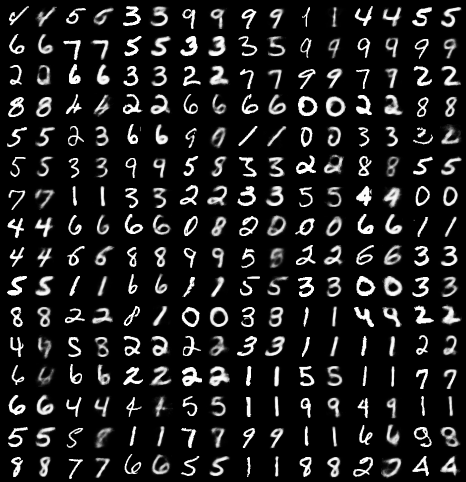 5 6 3 3 9 9 9 9 1 1 4 4 5 5
6 6 7 7 5 5 3 3 3 5 9 9 9 9 9 9
2 0 6 6 3 3 2 2 7 7 9 9 7 7 2 2
8 8 4 4 2 2 6 6 6 6 0 0 2 2 8 8
5 5 2 3 6 6 9 0 1 1 0 0 3 3 2
5 5 3 3 9 9 5 8 3 3 2 2 8 8 5 5
7 7 1 1 3 3 2 2 3 3 5 5 4 4 0 0
4 4 6 6 6 6 0 8 2 0 0 0 6 6 1 1
4 4 6 6 8 8 9 9 5 8 2 2 6 6 3 3
5 5 1 1 6 6 1 1 5 5 3 3 0 0 3 3
8 8 2 2 8 1 0 0 3 8 1 1 4 9 2 2
4 9 5 8 2 2 2 2 3 3 1 1 1 1 2 2
6 6 6 2 2 2 2 1 1 5 5 1 1 7 7
6 6 4 4 4 5 5 1 1 9 9 4 9 1 1
5 5 5 8 1 1 7 7 9 9 1 1 6 6 9 8
8 8 7 7 6 6 5 5 1 1 8 8 2 4 4